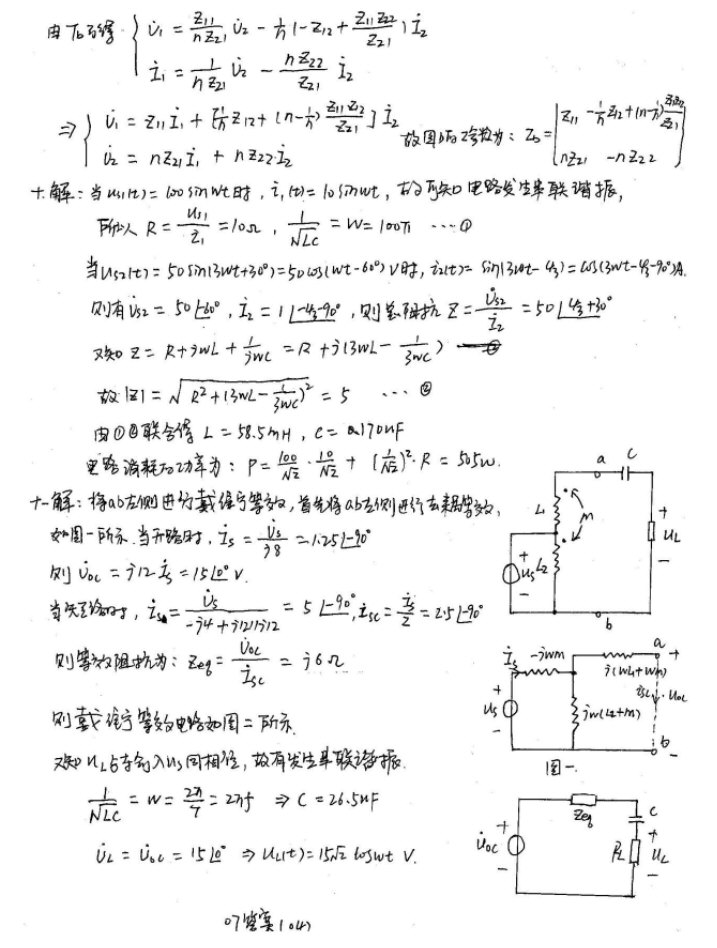 由Tb可得 { U̇₁ = Z₁₁/(nZ₂₁) U̇₂ - 1/n (-Z₁₂ + Z₁₁Z₂₂/Z₂₁) İ₂
İ₁ = 1/(nZ₂₁) U̇₂ - nZ₂₂/Z₂₁ İ₂
⇒ { U̇₁ = Z₁₁İ₁ + [1/n Z₁₂ + (n-1/n) Z₁₁Z₂₂/Z₂₁] İ₂
U̇₂ = nZ₂₁İ₁ + nZ₂₂İ₂ 故图b的Z参数为: Z_b = [Z₁₁ -1/n Z₁₂+(n-1/n) Z₁₁Z₂₂/Z₂₁ ; nZ₂₁ -nZ₂₂]
十.解: 当us₁(t)=100sinwt时, i₁(t)=10sinwt, 故可知电路发生串联谐振,
所以 R = us₁/i₁ = 10Ω, 1/√LC = W = 100π …①
当us₂(t)=50sin(3wt+30°)=50cos(wt-60°)V时, i₂(t)= sin(3wt-ψ₃)=cos(3wt-ψ₃-90°)A.
则有U̇s₂ = 50∠-60°, İ₂ = 1∠-ψ₃-90°, 则总阻抗 Z = U̇s₂/İ₂ = 50∠ψ₃+30°
又知 Z = R+jwL + 1/jwc = R + j(3wL - 1/3wc)
故|Z| = √(R²+(3wL-1/3wc)²) = 5 … ②
由①②联合得 L = 58.5mH, C = 0.170uF
电路消耗的功率为: P = 100/√2 · 10/√2 + (1/√2)²·R = 505w.
十一解: 将ab左侧进行戴维宁等效, 首先将ab左侧进行去耦等效,
如图一所示. 当开路时, İs = U̇s/j8 = 1.25∠-90°
则 U̇oc = j12·İs = 15∠0° V.
当短路时, İs = U̇s/(-j4+j12//j12) = 5∠-90°, İsc = İs/2 = 2.5∠-90°
则等效阻抗为: Zeq = U̇oc/İsc = j6Ω
则戴维宁等效电路如图二所示.
又知uL与输入us同相位, 故有发生串联谐振.
1/√LC = W = 2π/T = 2πf ⇒ C = 26.5uF
U̇L = U̇oc = 15∠0° ⇒ uL(t) = 15√2 coswt V.
a C
L₁ M + uL -
+ us - L₂
b
İs -jwm a +
j(wL₁+wm)
+ us - jw(L₂+m) isc U̇oc
b -
图一.
Zeq C
+ U̇oc - RL + uL -
07答案(04)